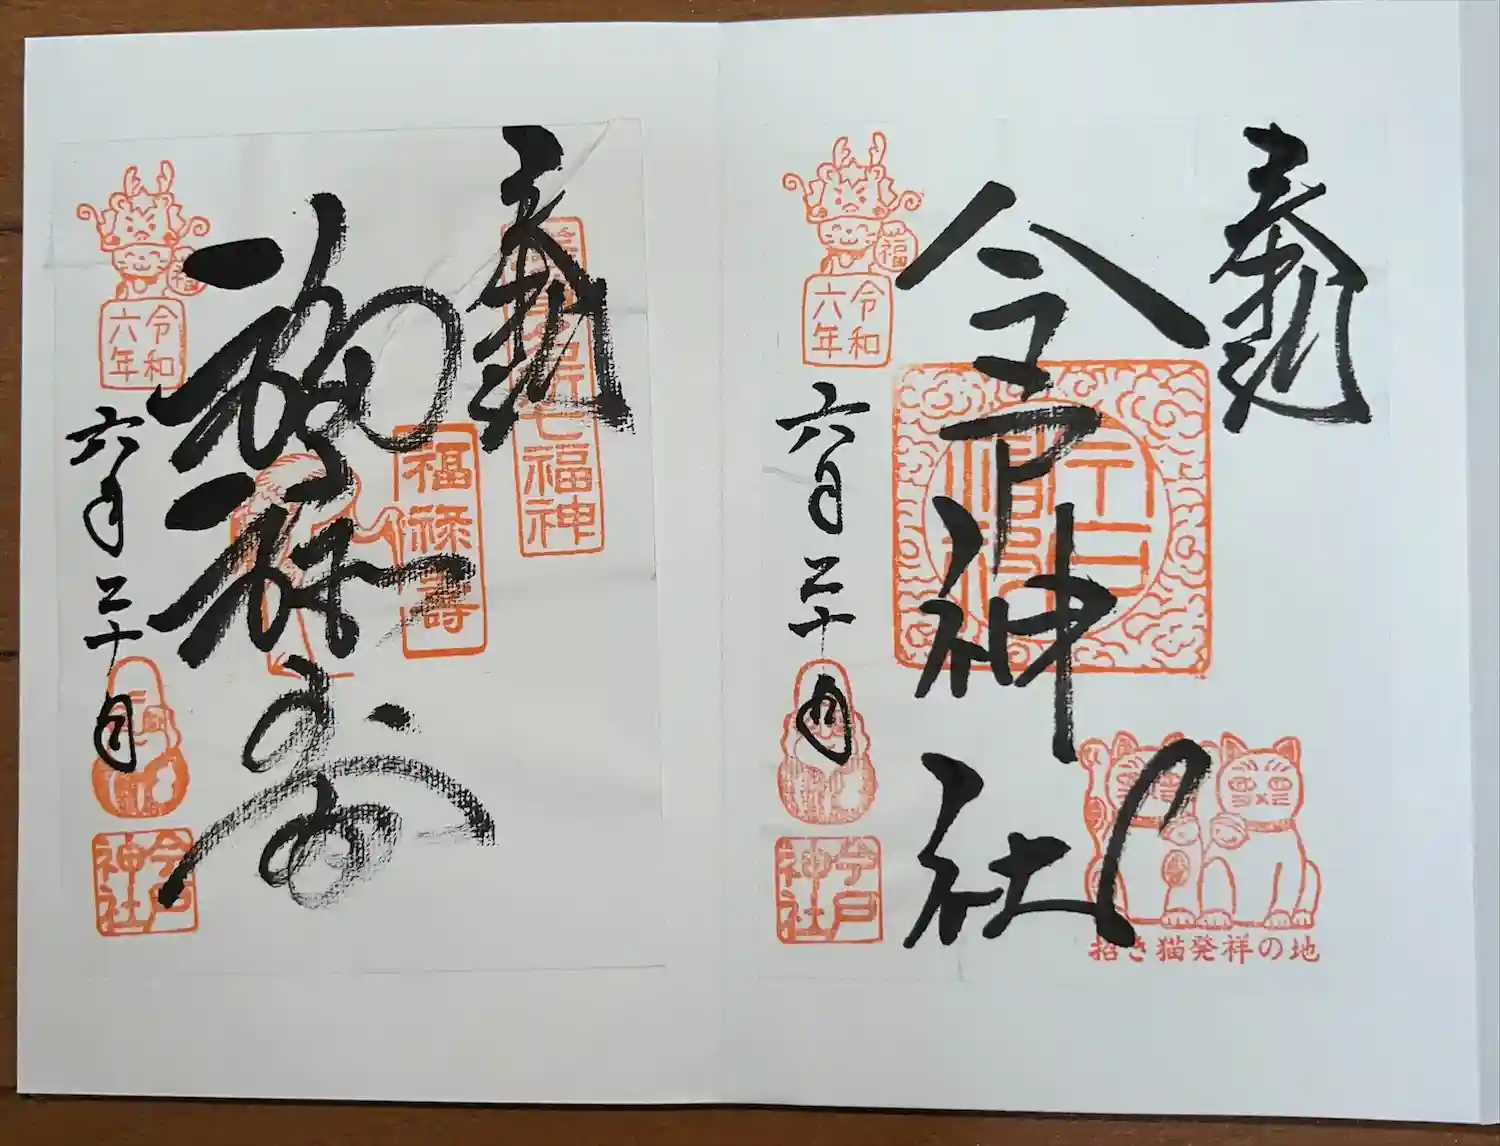 奉拝
今戸神社
福
令和
六年
六月二十日
今戸
神社
招き猫発祥の地
奉拝
七福神
福禄寿
福禄壽
福
令和
六年
六月二十日
今戸
神社